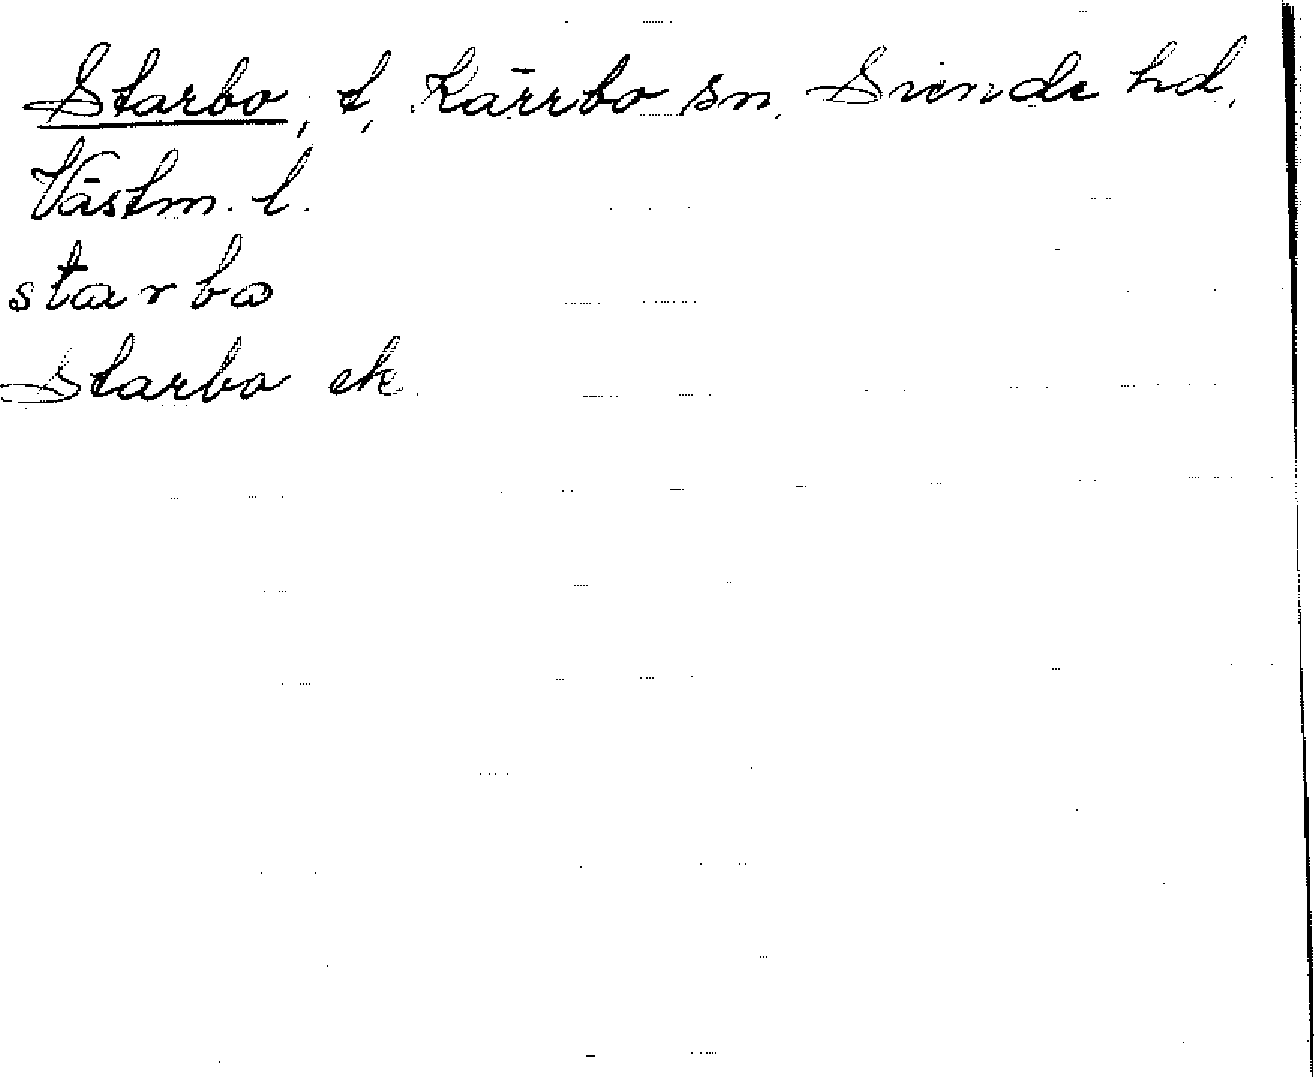 Starbo, t, Kärrbo sn, Siende hd,
Västm. l.
starbo
Starbo ek.